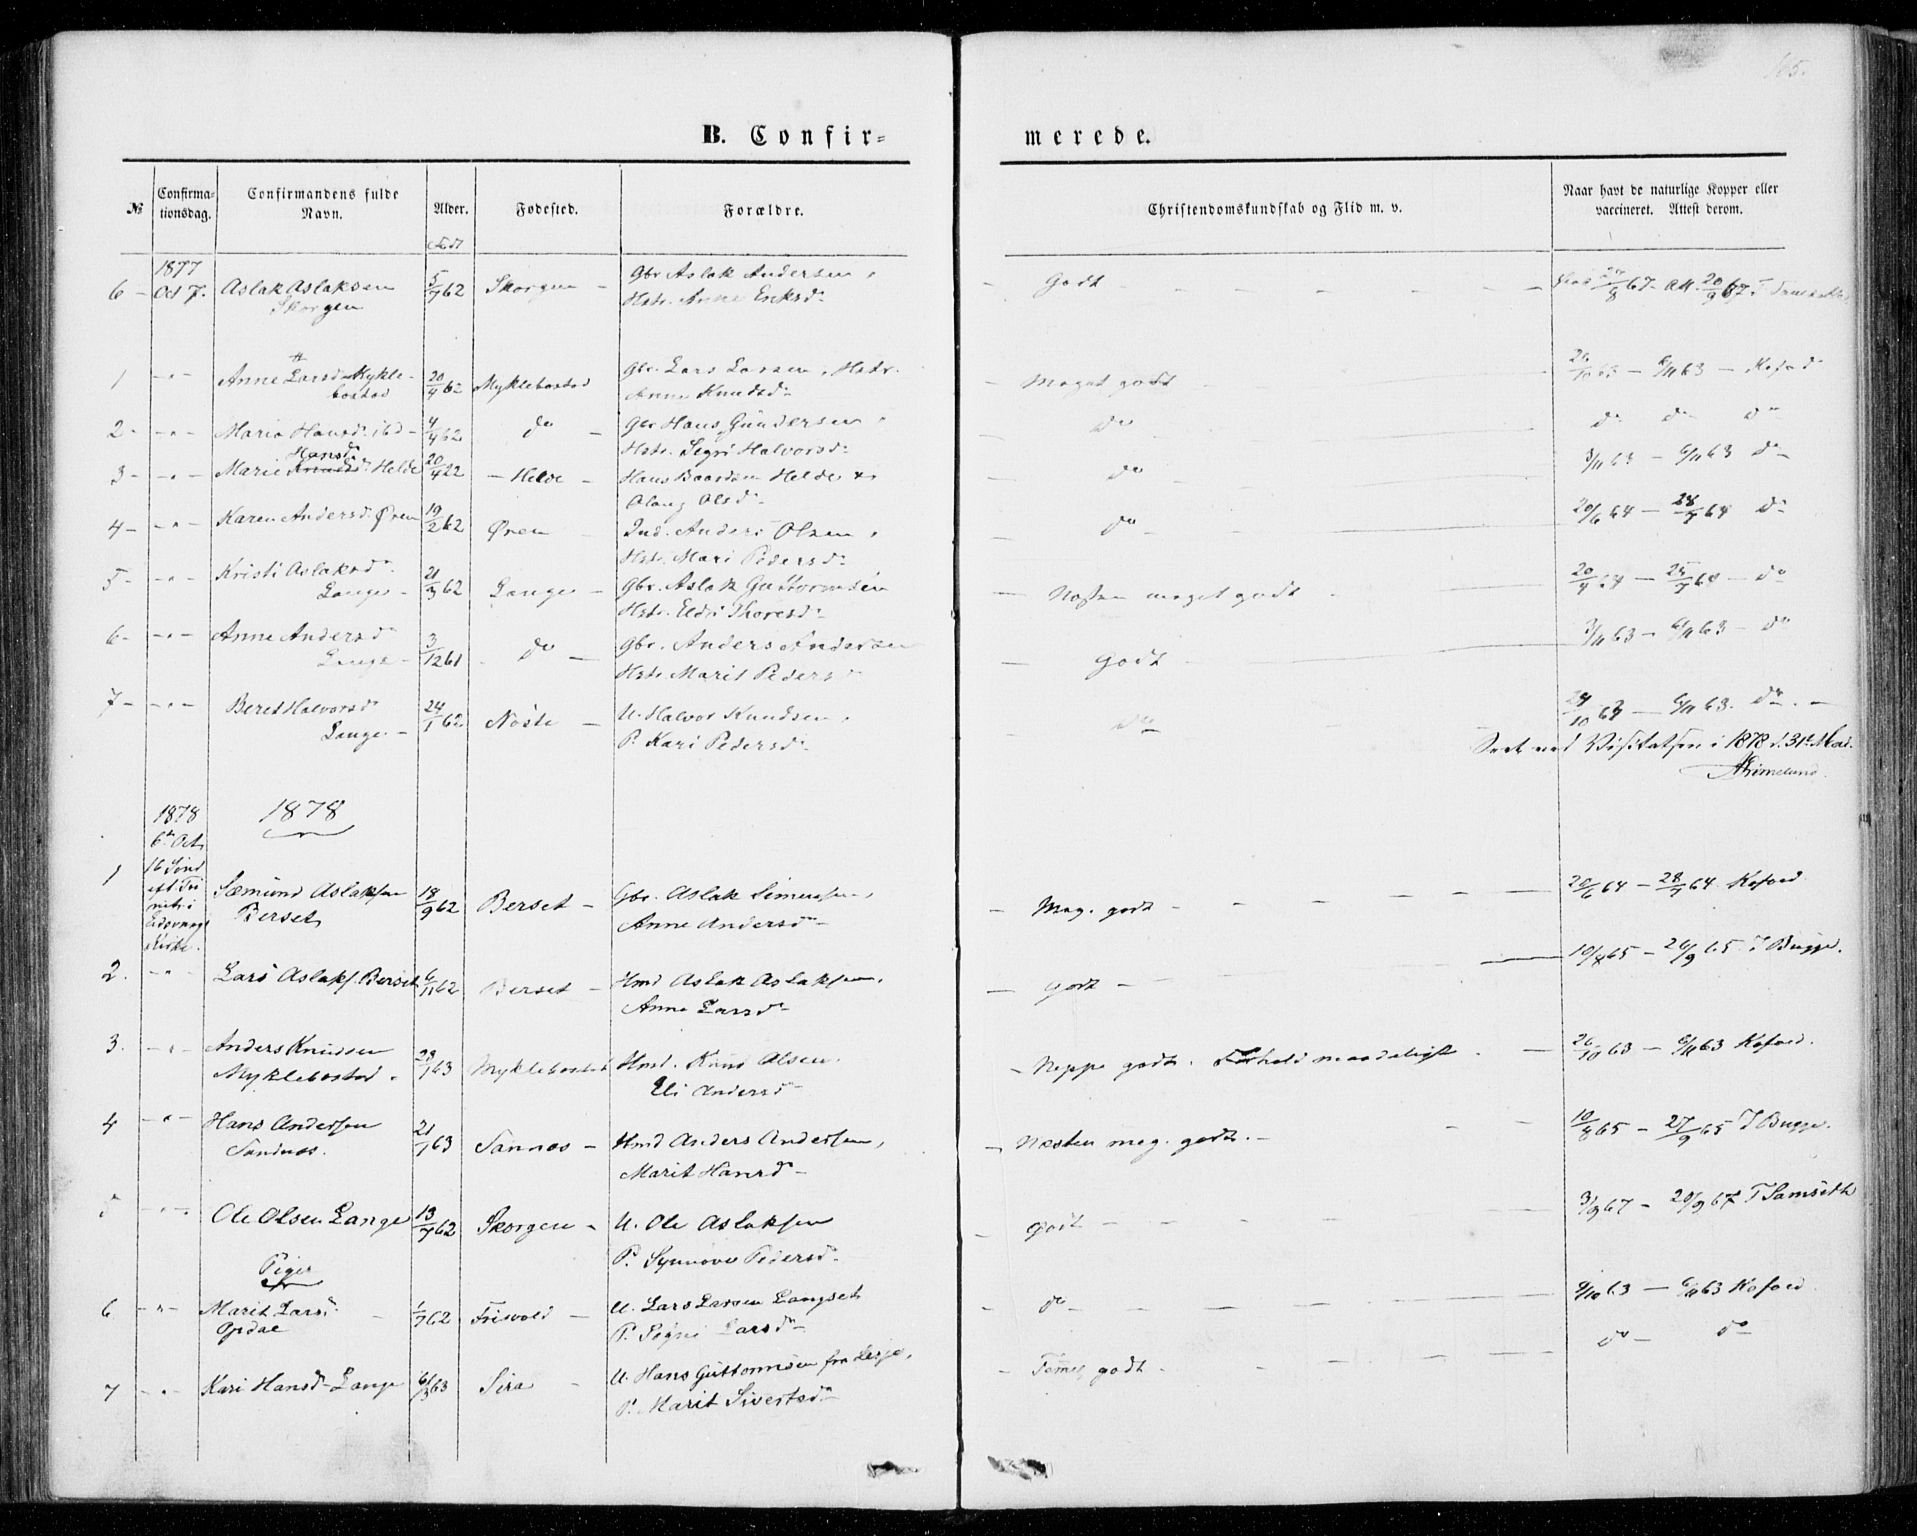 165.
B. Confir=
merede.
№
Confirma=
tionsdag.
Confirmandens fulde
Navn.
Alder.
Født
Fødested.
Forældre.
Christendomskundskab og Flid m. v.
Naar havt de naturlige Kopper eller
vaccineret. Attest derom.
6 - 1877 Oct 7. Aslak Aslaksen 5/7 62 Skorgen - Gbr Aslak Andersen, - Godt - 67 - Att. 20/9 67
Skorgen Hstr. Anne Eriksd.
1 - " - Anne Larsd. Mykle- 20/4 62 Myklebostad Gbr. Lars Larsen, Hstr. - Meget godt 26/10 63 - 6/11 63 - Kofoed
bostad Anne Knudsd.
2 - " - Marie Hansd. ibd - 4/4 62 do - Gbr Hans Gundersen, - do do do do
Hstr. Segri Halvorsd.
3 - " - Marie Knudsd. Hansd. Helde 20/4 22 - Helde - Hans Baardsen Helde & - do 3/11 63 - 6/11 63 do
Olaug Olsd.
4 - " - Karen Andersd. Øren 19/2 62 Øren - Ind. Anders Olsen, - do - 20/6 64 - 28/7 64 do
Hstr. Mari Pedersd.
5 - " - Kristi Aslaksd. 21/3 62 Lange - Gbr. Aslak Guttormsen - Næsten meget godt - do
Lange - Hstr. Eldri Thoresd.
6 - " - Anne Andersd. 3/12 61 - do - Gbr. Anders Andersen - Godt 3/11 63 - 6/11 63 - do
Lange - Hstr Marit Pedersd
7 - " - Beret Halvorsd 24/1 62 Nöste - U. Halvor Knudsen, do - 6/11 63. do. -
Lange - P. Kari Pedersd.
Seet ved Visitatsen i 1878 d. 31te Mai.
Grimelund.
1878 1878
6te Oct.
1 16 Sønd Sæmund Aslaksen 18/9 62 Berset - Gbr. Aslak Simensen, - Meg. godt - 20/6 64 - 28/7 64 Kofoed
eft. Tri Berset Anne Andersd -
nit. i
Eidsvaags
Kirke.
2. - " - Lars Aslaks. Berset 6/11 62 Berset - Hmd Aslak Aslaksen, - Godt - 10/8 65 - 26/9 65. J Bugge.
Anne Larsd -
3. - " - Anders Knudsen 23/1 63 Myklebostad Hmd. Knud Olsen. - Neppe godt. Forhold maadeligt. - 26/10 63 - 6/11 63 Kofoed.
Myklebostad. Eli Andersd -
4 - " - Hans Andersen 21/1 63 Sannes - Hmd Anders Andersen, - Næsten meg. godt. - 10/8 65 - 27/9 65 J Bugge.
Sandnes. Marit Hansd -
5 - " - Ole Olsen Lange 13/7 62 Skorgen - U. Ole Aslaksen - Godt - 3/9 67 - 20/9 67 T Samseth
P. Synnove Pedersd.
Piger
6 - " - Marit Larsd. - 1/7 62 Frisvold - U. Lars Larsen Langset - do - 9/10 63 - 6/11 63 Kofoed.
Opdal P. Segri Larsd -
7 - " - Kari Hansd - Lange 63 Sira - U. Hans Guttormsen fra Lesje, - Temel. godt - do - do
P. Marit Sivertsd -